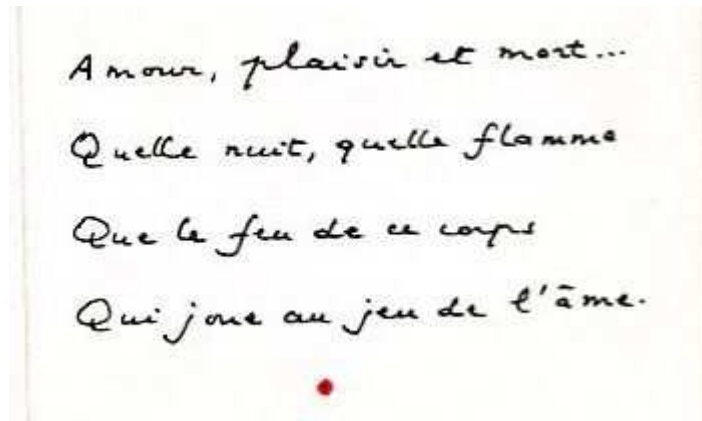 Amour, plaisir et mort...
Quelle nuit, quelle flamme
Que le feu de ce corps
Qui joue au jeu de l'âme.